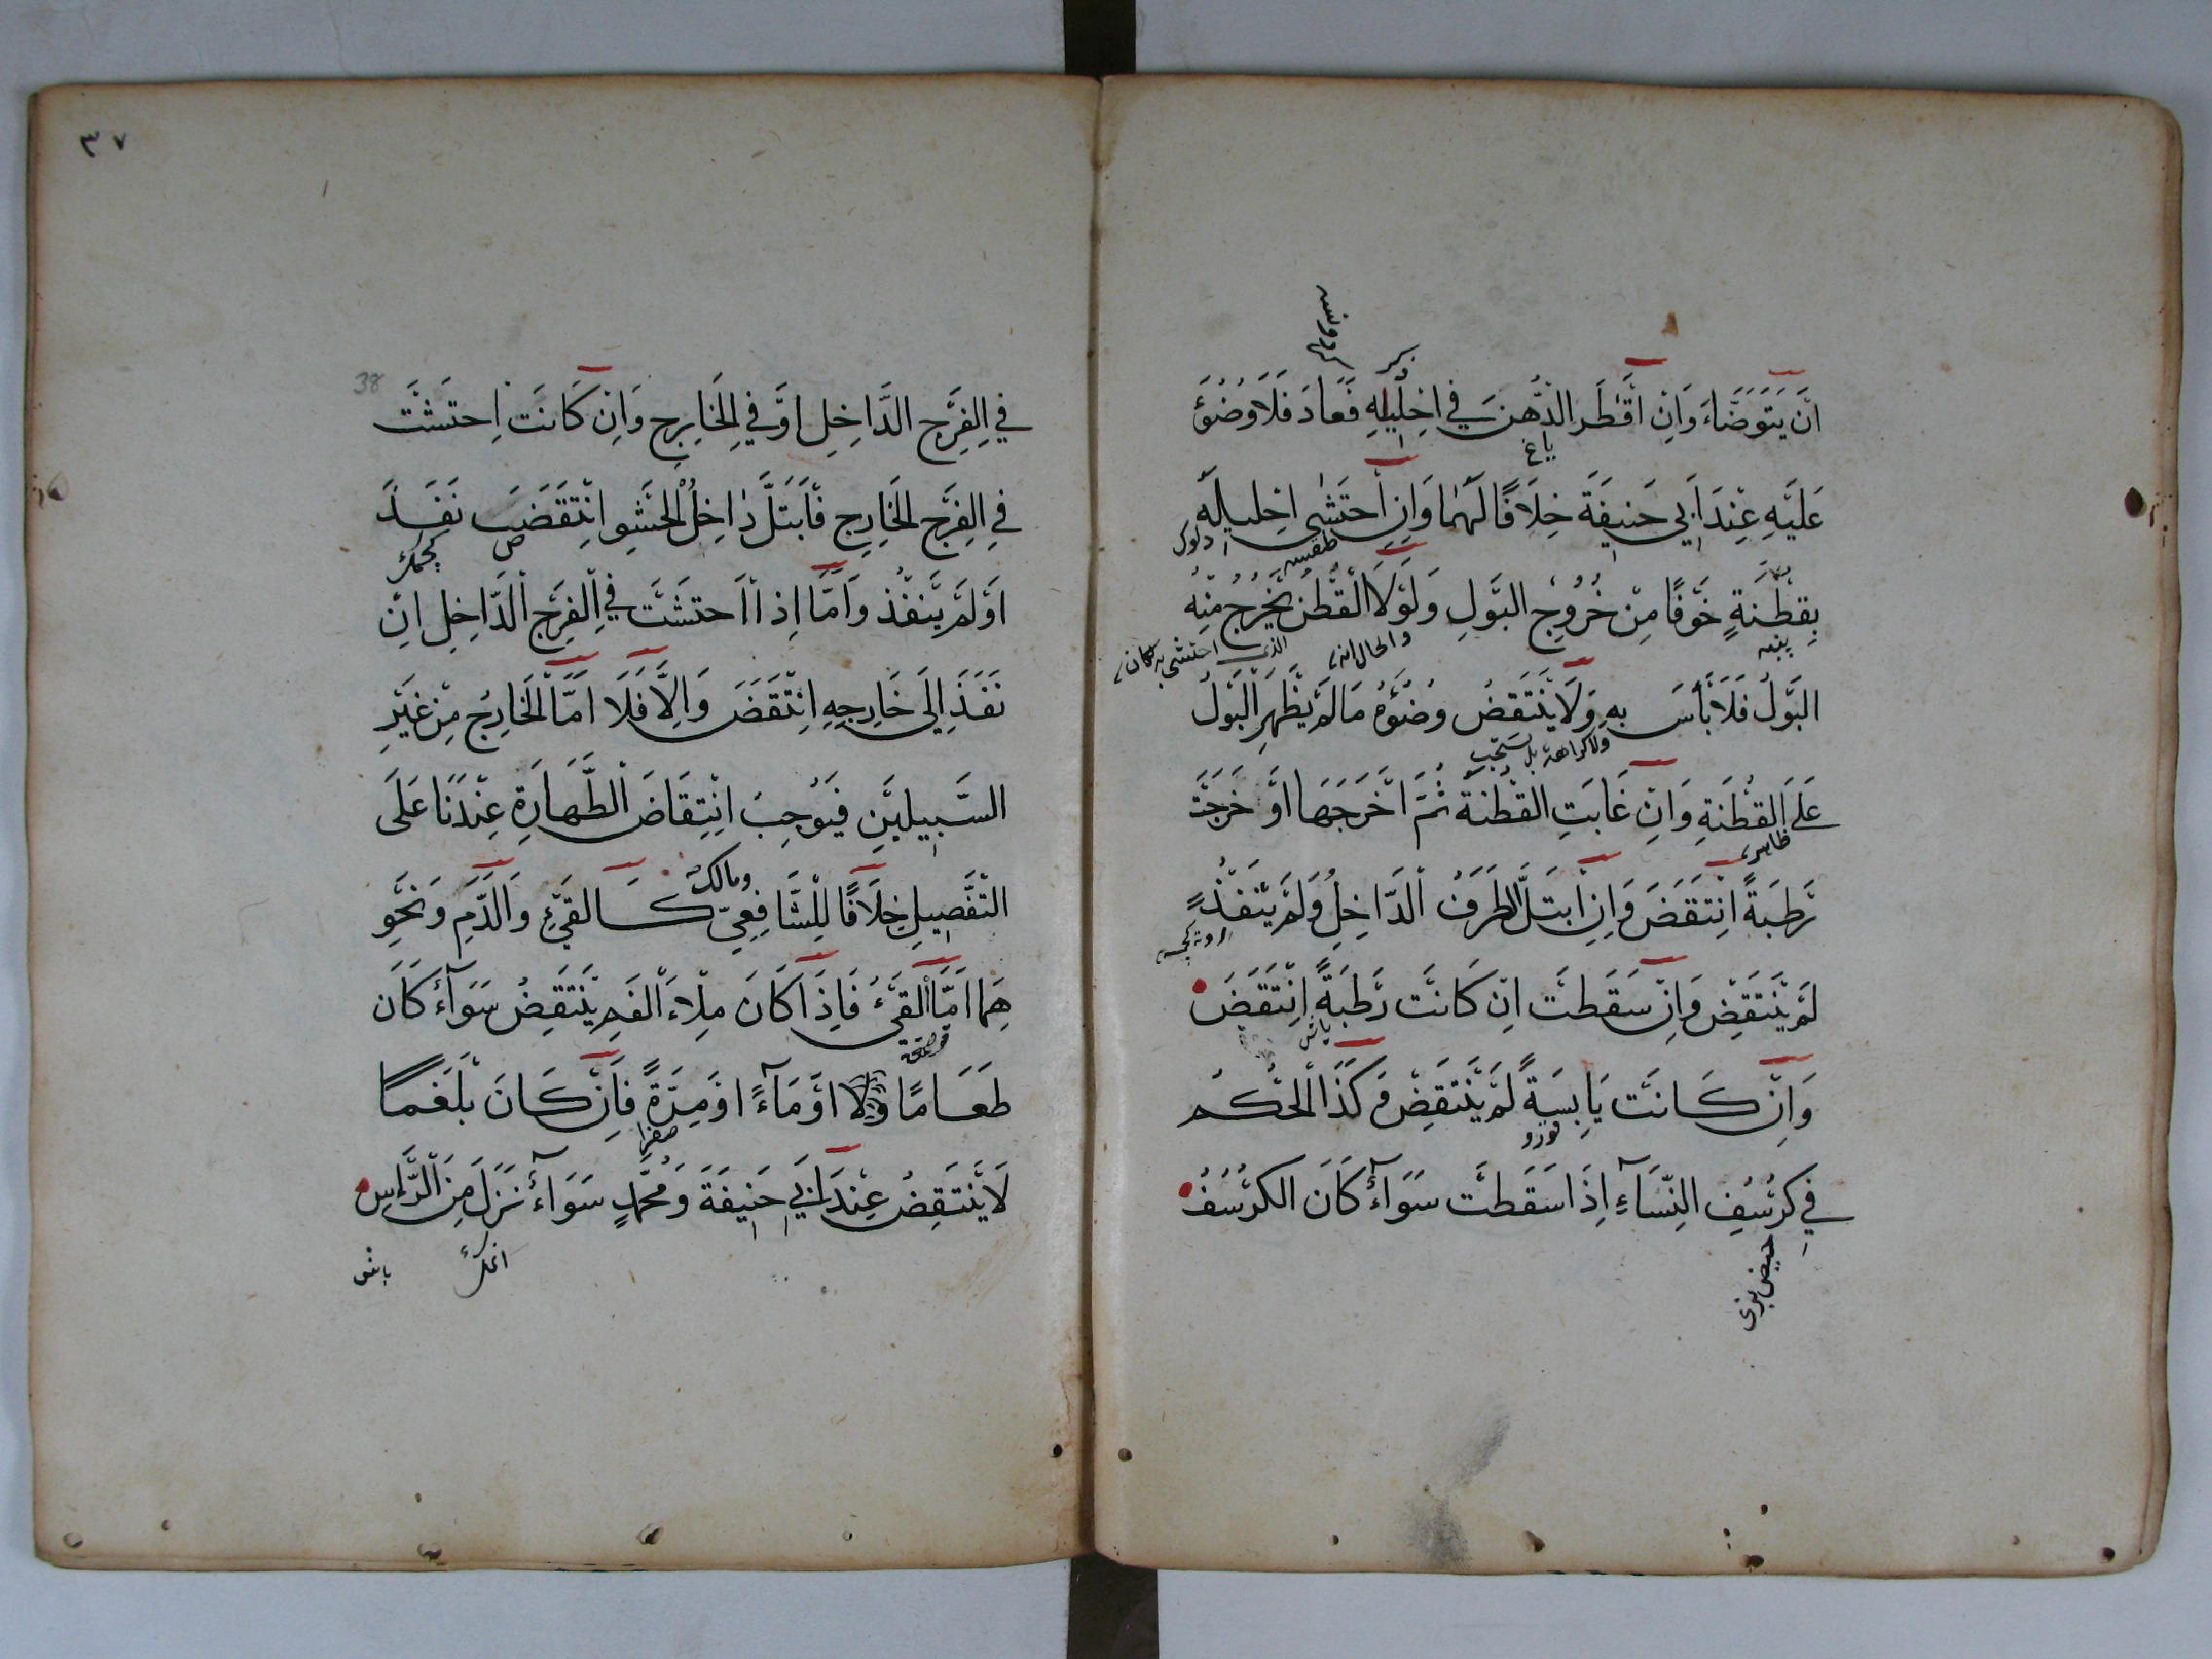 اَنْ يَتَوَضَّاءَ وَاِنْ اَقْطَرَ الدُّهْنَ فِي اِحْلِيلِهِ فَعَادَ فَلَا وُضُوْءَ
ياغ
عَلَيْهِ عِنْدَ اَبِي حَنِيفَةَ خِلَافًا لَهُمَا وَاِنْ اَحْتَشٰى اِحْلِيلَهُ
بِقُطْنَةٍ خَوْفًا مِنْ خُرُوْجِ البَوْلِ وَلَوْلَا الْقُطْنُ يَخْرُجُ مِنْهُ
پنبه
والحال انه
الذى احتشى به كان
البَوْلُ فَلَا بَأْسَ بِهِ وَلَا يَنْتَقِضُ وُضُوْءُهُ مَا لَمْ يَظْهَرِ الْبَوْلُ
ولا كراهة بل يستحب
عَلَى القُطْنَةِ وَاِنْ غَابَتِ القُطْنَةُ ثُمَّ اَخْرَجَهَا اَوْ خَرَجَتْ
ظاهر
رَطْبَةً اِنْتَقَضَ وَاِنِ ابْتَلَّ الطَّرَفُ الدَّاخِلُ وَلَمْ يَنْفُذْ
لَمْ يَنْتَقِضْ وَاِنْ سَقَطَتْ اِنْ كَانَتْ رَطْبَةً اِنْتَقَضَ
ياش
وَاِنْ كَانَتْ يَابِسَةً لَمْ يَنْتَقِضْ وَكَذَا الْحُكْمُ
قورو
فِي كُرْسُفِ النِّسَآءِ اِذَا سَقَطَتْ سَوَآءٌ كَانَ الكُرْسُفُ
حيض بزى
٣٧
38
فِي الْفَرْجِ الدَّاخِلِ اَوْ فِي الْخَارِجِ وَاِنْ كَانَتْ اِحْتَشَتْ
فِي الْفَرْجِ الْخَارِجِ فَابْتَلَّ دَاخِلُ الْحَشْوِ اِنْتَقَضَ نَفَذَ
اَوْ لَمْ يَنْفُذْ وَاَمَّا اِذَا اَحْتَشَتْ فِي الْفَرْجِ الْدَّاخِلِ اِنْ
نَفَذَ اِلَى خَارِجِهِ اِنْتَقَضَ وَاِلَّا فَلَا اَمَّا الْخَارِجُ مِنْ غَيْرِ
السَّبِيلَيْنِ فَيُوْجِبُ اِنْتِقَاضَ الطَّهَارَةِ عِنْدَنَا عَلَى
ومالك
التَّفْصِيلِ خِلَافًا لِلشَّافِعِيّ كَالقَيْءِ وَالدَّمِ وَنَحْوِ
هِمَا اَمَّا القَيْءُ فَاِذَا كَانَ مِلْاءَ الْفَمِ يَنْتَقِضُ سَوَآءٌ كَانَ
طَعَامًا اَوْ مَآءً اَوْ مِرَّةً فَاِنْ كَانَ بَلْغَمًا
صفرا
لَا يَنْتَقِضُ عِنْدَ اَبِي حَنِيفَةَ وَمُحَمَّدٍ سَوَآءٌ نَزَلَ مِنَ الرَّأْسِ
باش